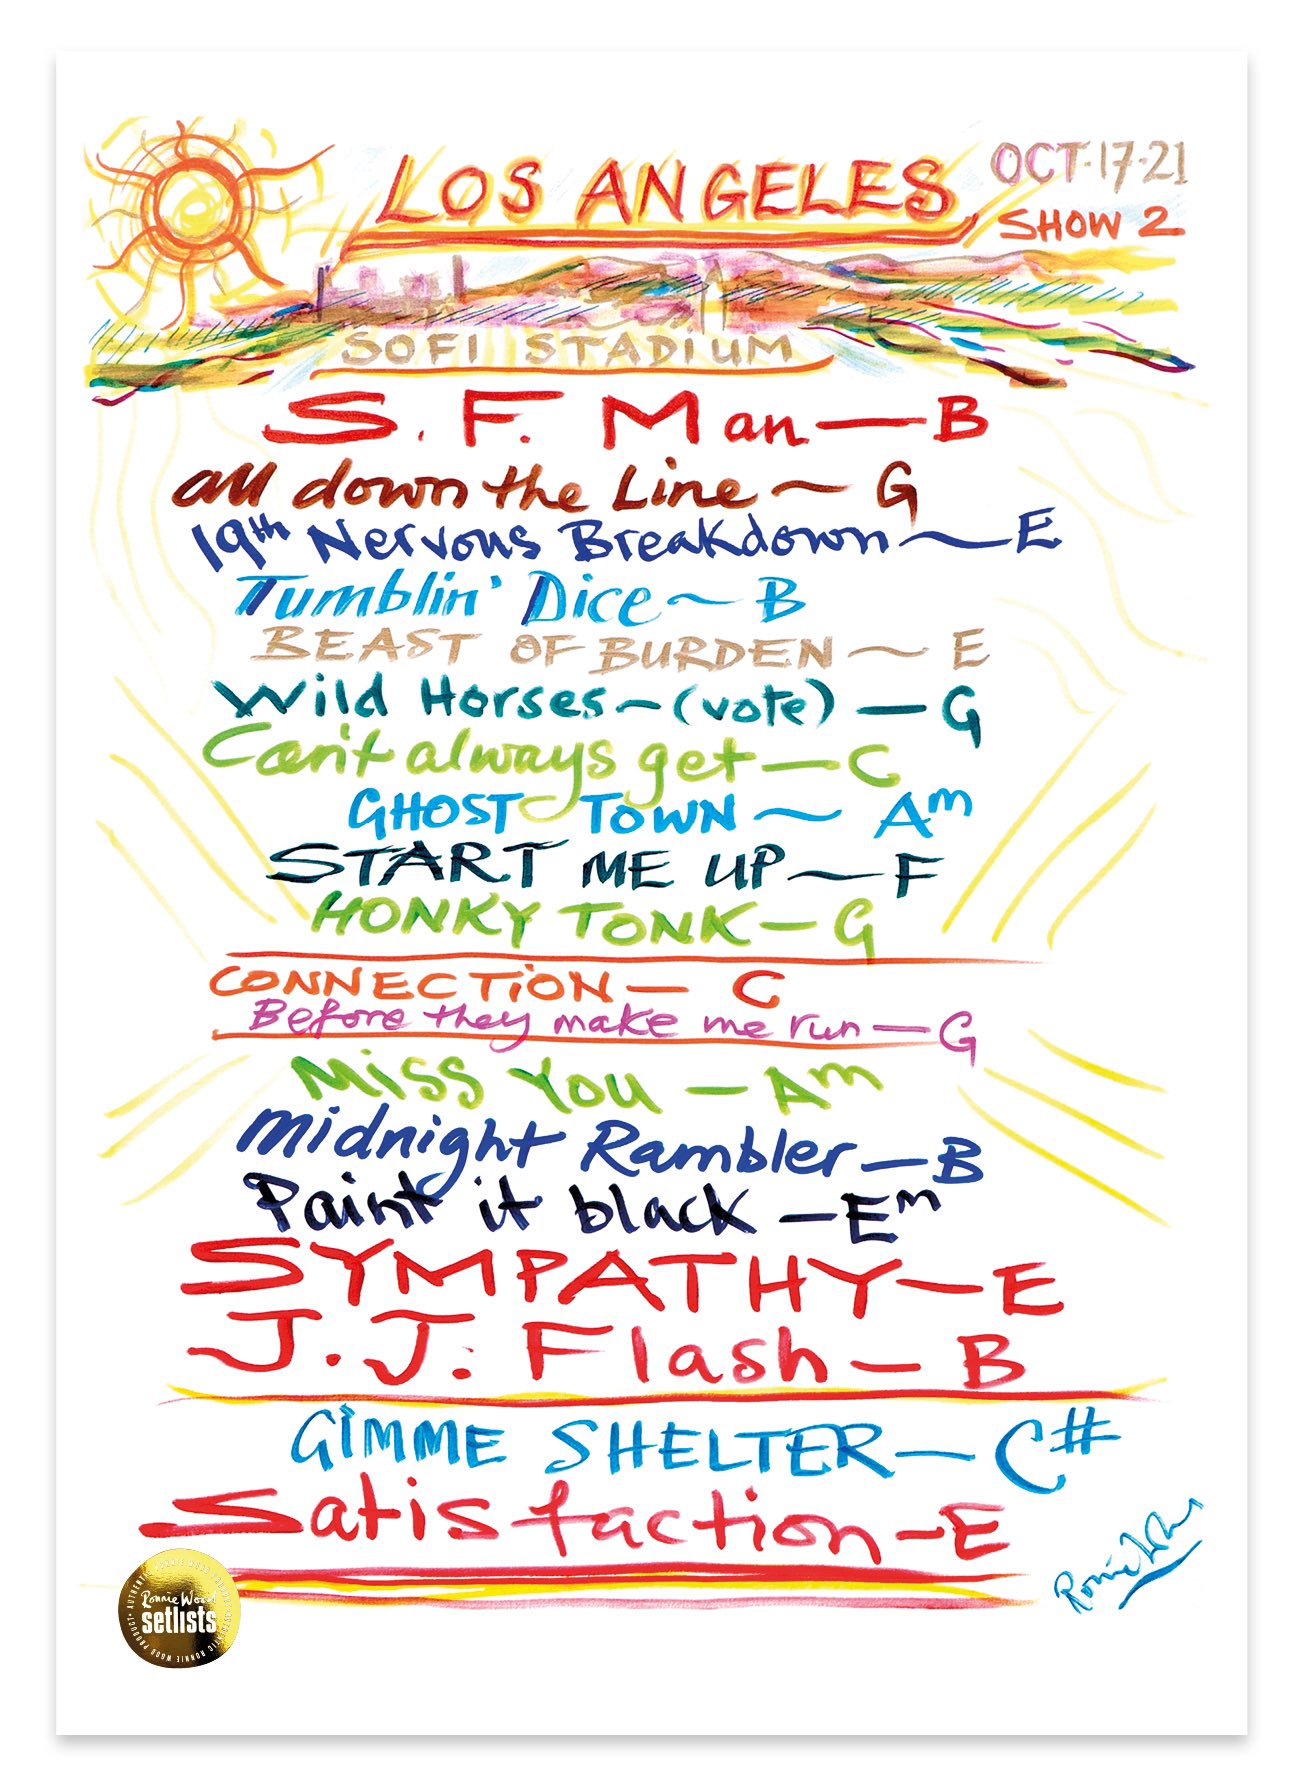 LOS ANGELES
OCT·17·21
SHOW 2
SOFI STADIUM
S. F. Man — B
all down the Line ~ G
19th Nervous Breakdown ~ E
Tumblin' Dice ~ B
BEAST OF BURDEN ~ E
Wild Horses ~ (vote) — G
Can't always get — C
GHOST TOWN ~ Am
START ME UP ~ F
HONKY TONK — G
CONNECTION — C
Before they make me run — G
Miss You — Am
Midnight Rambler — B
Paint it black — Em
SYMPATHY — E
J.J. Flash — B
GIMME SHELTER — C#
Satisfaction ~ E
Ronnie Wood
Ronnie Wood
setlists